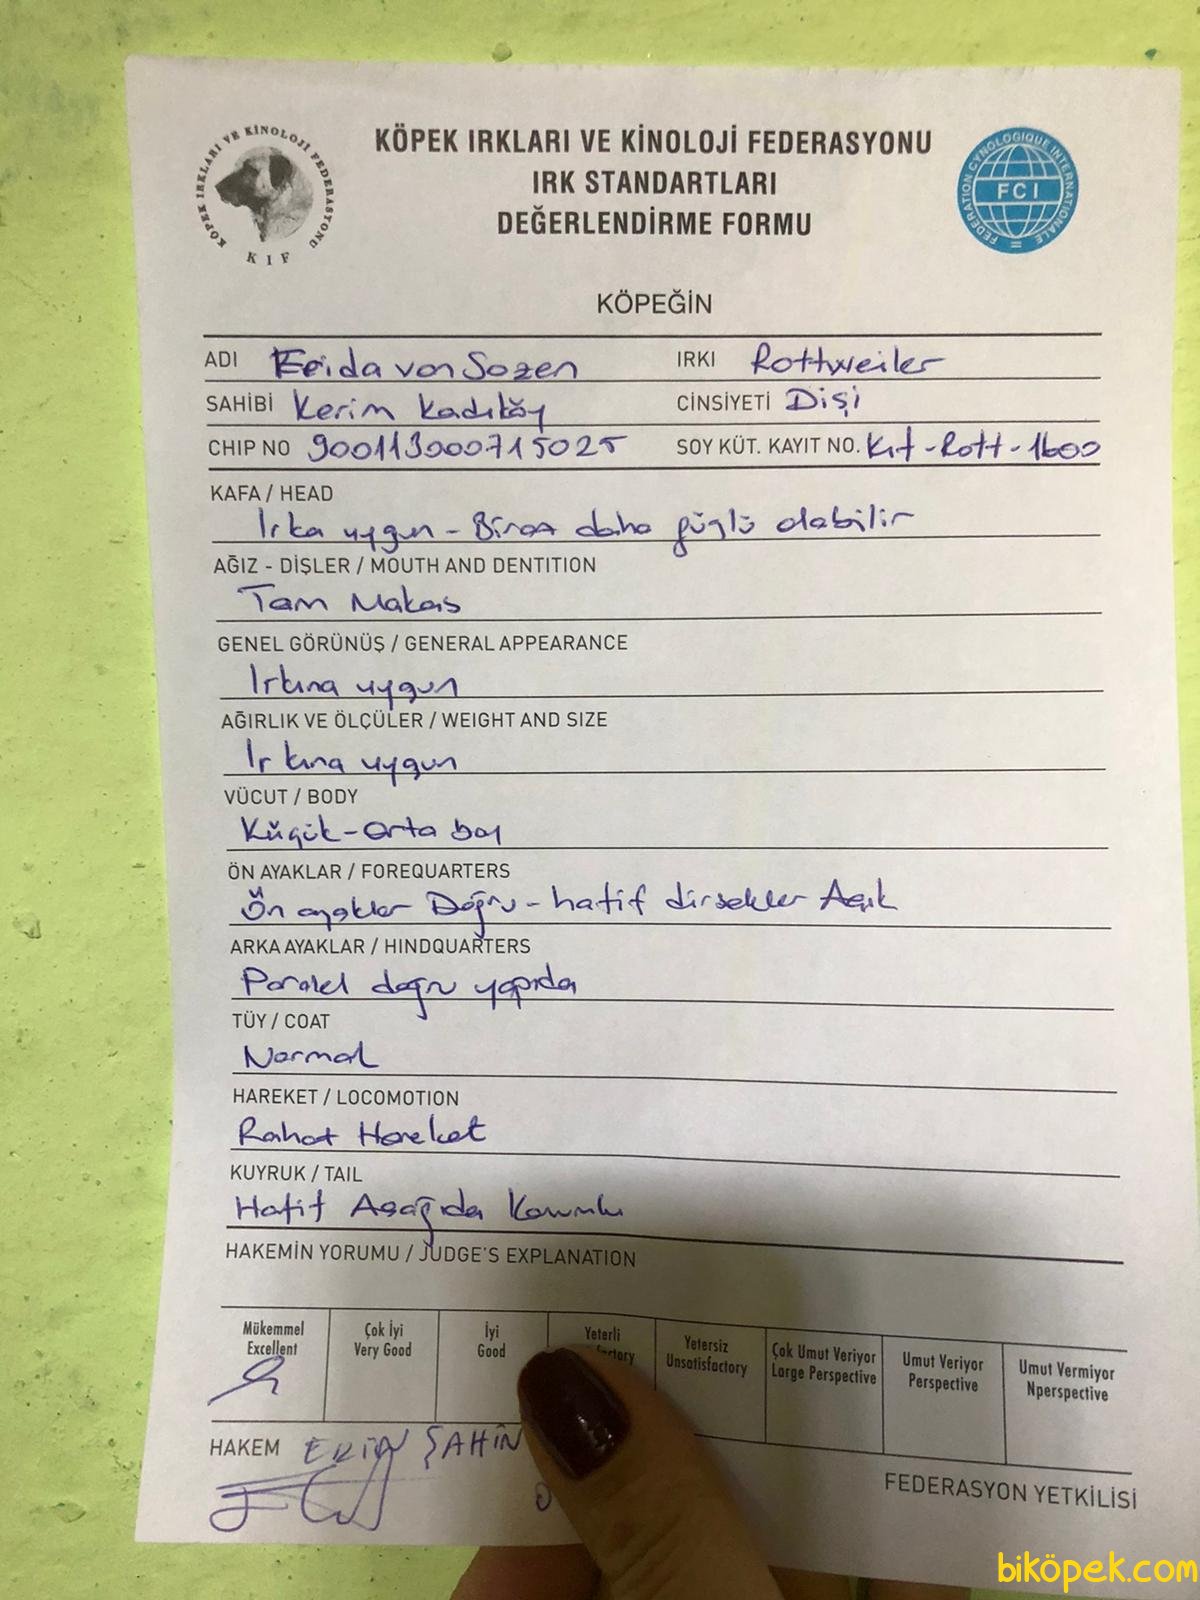 KÖPEK IRKLARI VE KİNOLOJİ FEDERASYONU
KIF
KÖPEK IRKLARI VE KİNOLOJİ FEDERASYONU
IRK STANDARTLARI
DEĞERLENDİRME FORMU
FEDERATION CYNOLOGIQUE INTERNATIONALE
FCI
KÖPEĞİN
ADI Frida von Sozen IRKI Rottweiler
SAHİBİ Kerim Kadıköy CİNSİYETİ Dişi
CHIP NO 900113000715025 SOY KÜT. KAYIT NO. Kıf-Rott-1600
KAFA / HEAD
Irka uygun - Biraz daha güçlü olabilir
AĞIZ - DİŞLER / MOUTH AND DENTITION
Tam Makas
GENEL GÖRÜNÜŞ / GENERAL APPEARANCE
Irkına uygun
AĞIRLIK VE ÖLÇÜLER / WEIGHT AND SIZE
Irkına uygun
VÜCUT / BODY
Küçük-Orta boy
ÖN AYAKLAR / FOREQUARTERS
Ön ayaklar Doğru - hafif dirsekler Açık
ARKA AYAKLAR / HINDQUARTERS
Paralel doğru yapıda
TÜY / COAT
Normal
HAREKET / LOCOMOTION
Rahat Hareket
KUYRUK / TAIL
Hafif Aşağıda Konumlu
HAKEMİN YORUMU / JUDGE'S EXPLANATION
Mükemmel Çok İyi İyi Yeterli Yetersiz Çok Umut Veriyor Umut Veriyor Umut Vermiyor
Excellent Very Good Good Unsatisfactory Large Perspective Perspective Nperspective
HAKEM ŞAHİN
FEDERASYON YETKİLİSİ
biköpek.com